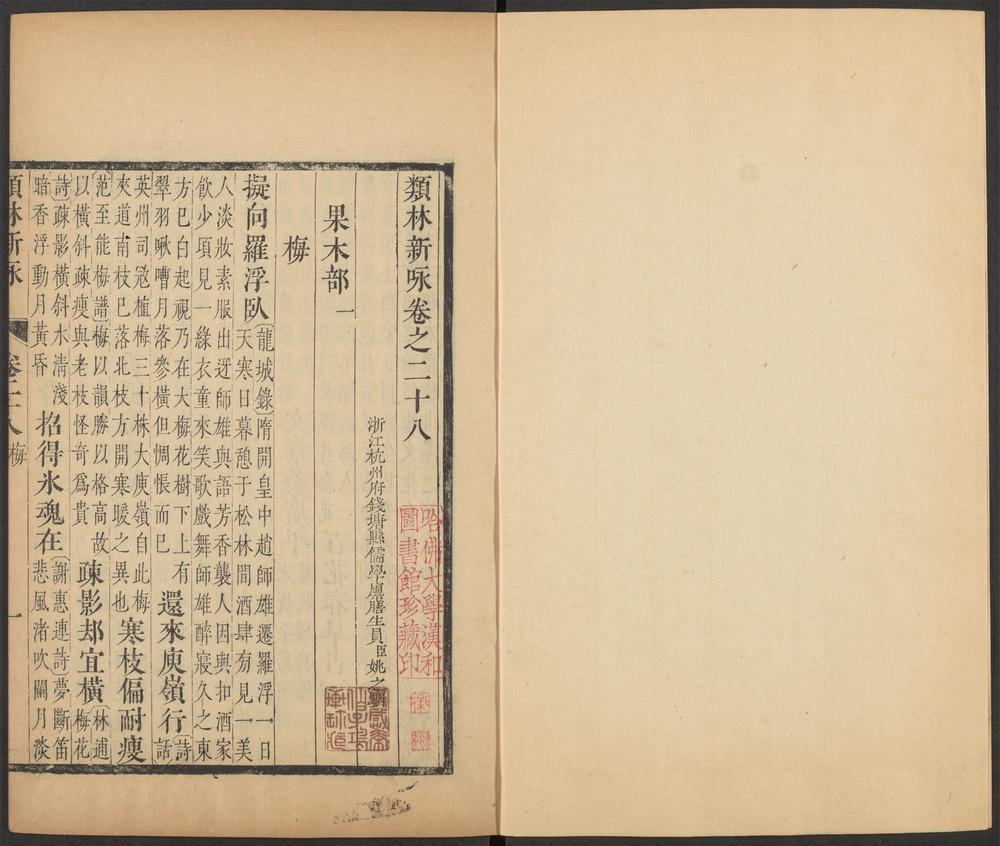 類林新咏卷之二十八
哈佛大學漢和
圖書館珍藏印
浙江杭州府錢塘縣儒學廩膳生員臣姚之
果木部一
梅
擬向羅浮臥龍城錄隋開皇中趙師雄遷羅浮一日
天寒日暮憩于松林間酒肆旁見一美
人淡妝素服出迓師雄與語芳香襲人因與扣酒家
飲少頃見一綠衣童來笑歌戲舞師雄醉寢久之東
方已白起視乃在大梅花樹下上有
翠羽啾嘈月落參橫但惆悵而已
還來庾嶺行詩
話
英州司寇植梅三十株大庾嶺自此梅
夾道南枝已落北枝方開寒暖之異也
寒枝偏耐瘦
范至能梅譜梅以韻勝以格高故
以橫斜疎瘦與老枝怪奇爲貴
疎影却宜橫林逋
梅花
詩疎影橫斜水清淺
暗香浮動月黃昏
招得氷魂在謝惠連詩夢斷笛
悲風渚吹闌月淡
類林新咏 卷二十八 梅 一